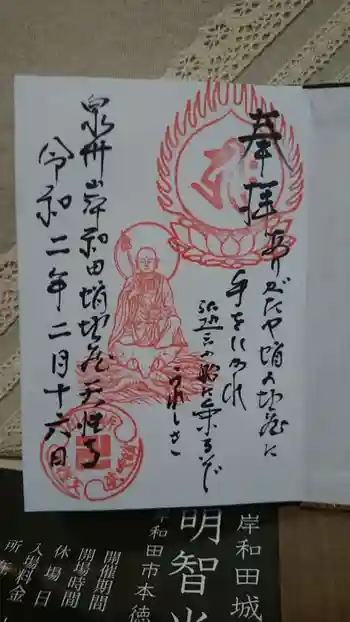 奉拝
ありがたや蛸の地蔵に
手をにかれ
弘誓の船に乗るぞ
うれしさ
泉州岸和田蛸地蔵天性寺
令和二年二月十六日
岸和田城
明智光
岸和田市本徳
開催期間
開場時間
休場日
入場料金
所